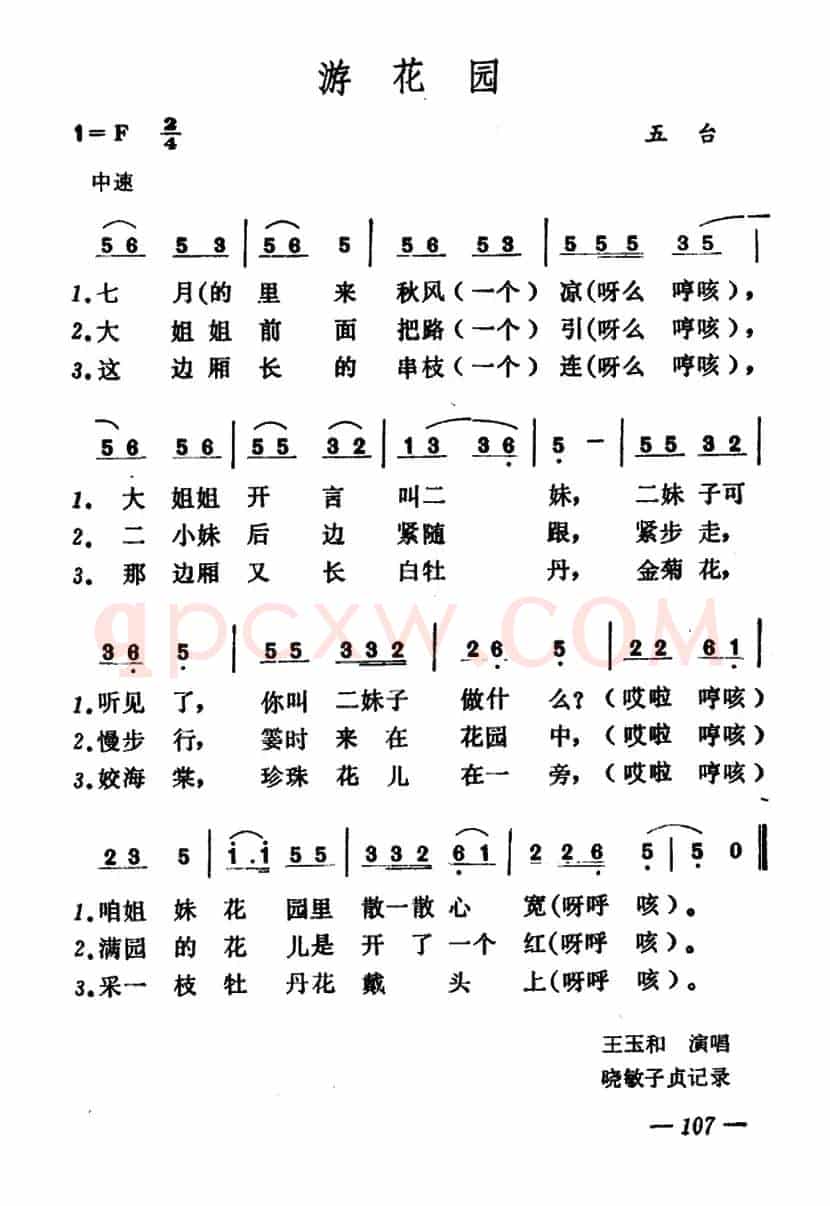 游花园
1=F 2/4 五台
中速
5 6 5 3 | 5 6 5 | 5 6 5 3 | 5 5 5 3 5 |
1.七 月(的 里 来 秋风(一个)凉(呀么 哼咳),
2.大 姐姐 前 面 把路(一个)引(呀么 哼咳),
3.这 边厢 长 的 串枝(一个)连(呀么 哼咳),
5 6 5 6 | 5 5 3 2 | 1 3 3 6̣ | 5̣ - | 5 5 3 2 |
1. 大 姐姐 开 言 叫二 妹, 二妹 子可
2. 二 小妹 后 边 紧随 跟, 紧步 走,
3. 那 边厢 又 长 白牡 丹, 金菊 花,
qpcxw.COM
3 6̣ 5̣ | 5 5 3 3 2 | 2 6̣ 5̣ | 2 2 6̣ 1 |
1.听见 了, 你叫 二妹子 做什 么?(哎啦 哼咳)
2.慢步 行, 霎时 来 在 花园 中,(哎啦 哼咳)
3.姣海 棠, 珍珠 花 儿 在一 旁,(哎啦 哼咳)
2 3 5 | i . i 5 5 | 3 3 2 6̣ 1 | 2 2 6̣ 5̣ | 5̣ 0 ‖
1.咱姐 妹 花 园里 散一散 心 宽(呀呼 咳)。
2.满园 的 花 儿是 开 了 一个 红(呀呼 咳)。
3.采一 枝 牡 丹花 戴 头 上(呀呼 咳)。
王玉和 演唱
晓敏子贞记录
— 107 —